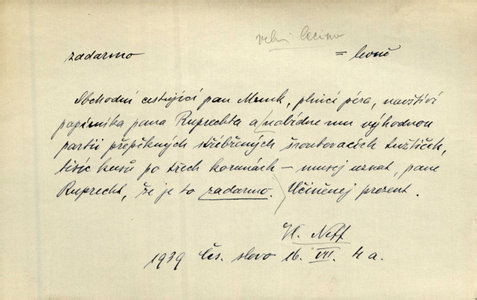 velmi lacino
zadarmo = levně
Obchodní cestující pan Munk, plnicí péra, navštíví
papírníka pana Ruprechta a nabídne mu výhodnou
partii překrásných stříbrných šroubovacích tužtiček,
tisíc kusů po třech korunách – musej uznat, pane
Ruprecht, že je to zadarmo. Učiněnej prezent.
Vl. Neff
1939 Čes. slovo 16. VII. 4 a.